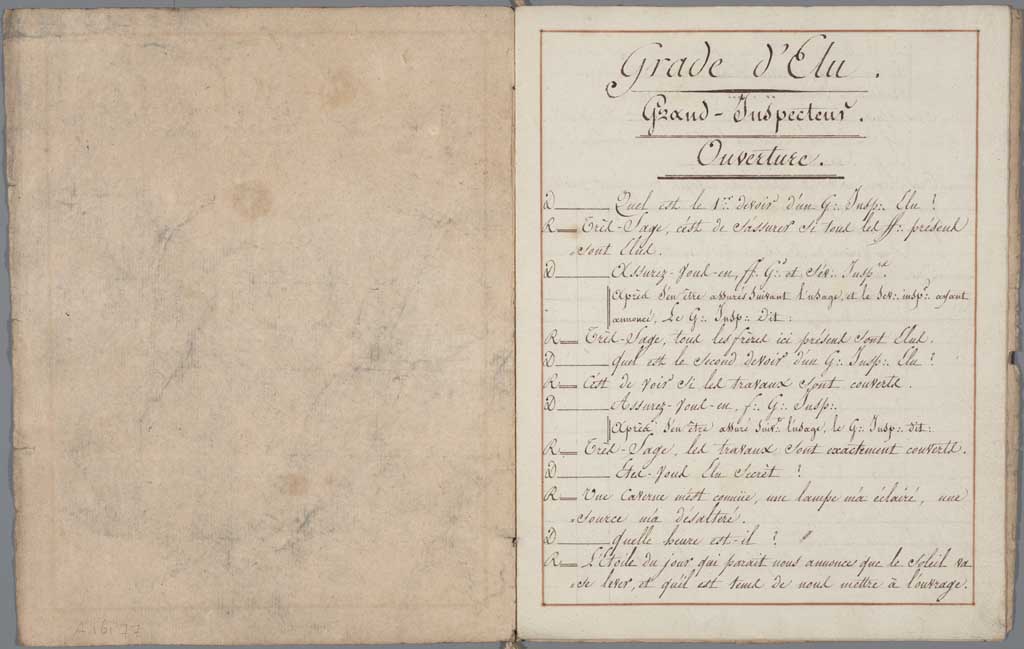 Grade d'Elu.
Grand-Inspecteur.
Ouverture.
D____ Quel est le 1er devoir d'un G:. Insp:. Elu ?
R__ Très-Sage, c'est de s'assurer si tous les ff:. présens
sont Elus.
D____ Assurez-vous-en, ff. G.s et Sév:. Insp.rs
Après s'en être assurés suivant l'usage, et le Sév:. insp.r ayant
annoncé, Le G:. Insp:. Dit:
R__ Très-Sage, tous les frères ici présens sont Elus.
D____ quel est le second devoir d'un G:. Insp:. Elu ?
R__ C'est de voir si les travaux sont couverts.
D____ Assurez-vous-en, f:. G:. Insp:.
Après s'en être assuré suiv.t l'usage, le G:. Insp:. dit:
R__ Très-Sage, les travaux sont exactement couverts.
D____ Etes-vous Elu Secrèt ?
R__ Une Caverne m'est connüe, une lampe m'a éclairé, une
source m'a désalteré.
D____ quelle heure est-il ?
R__ L'Etoile du jour qui parait nous annonce que le soleil va
se lever, et qu'il est tems de nous mettre à l'ouvrage.
A.161.77